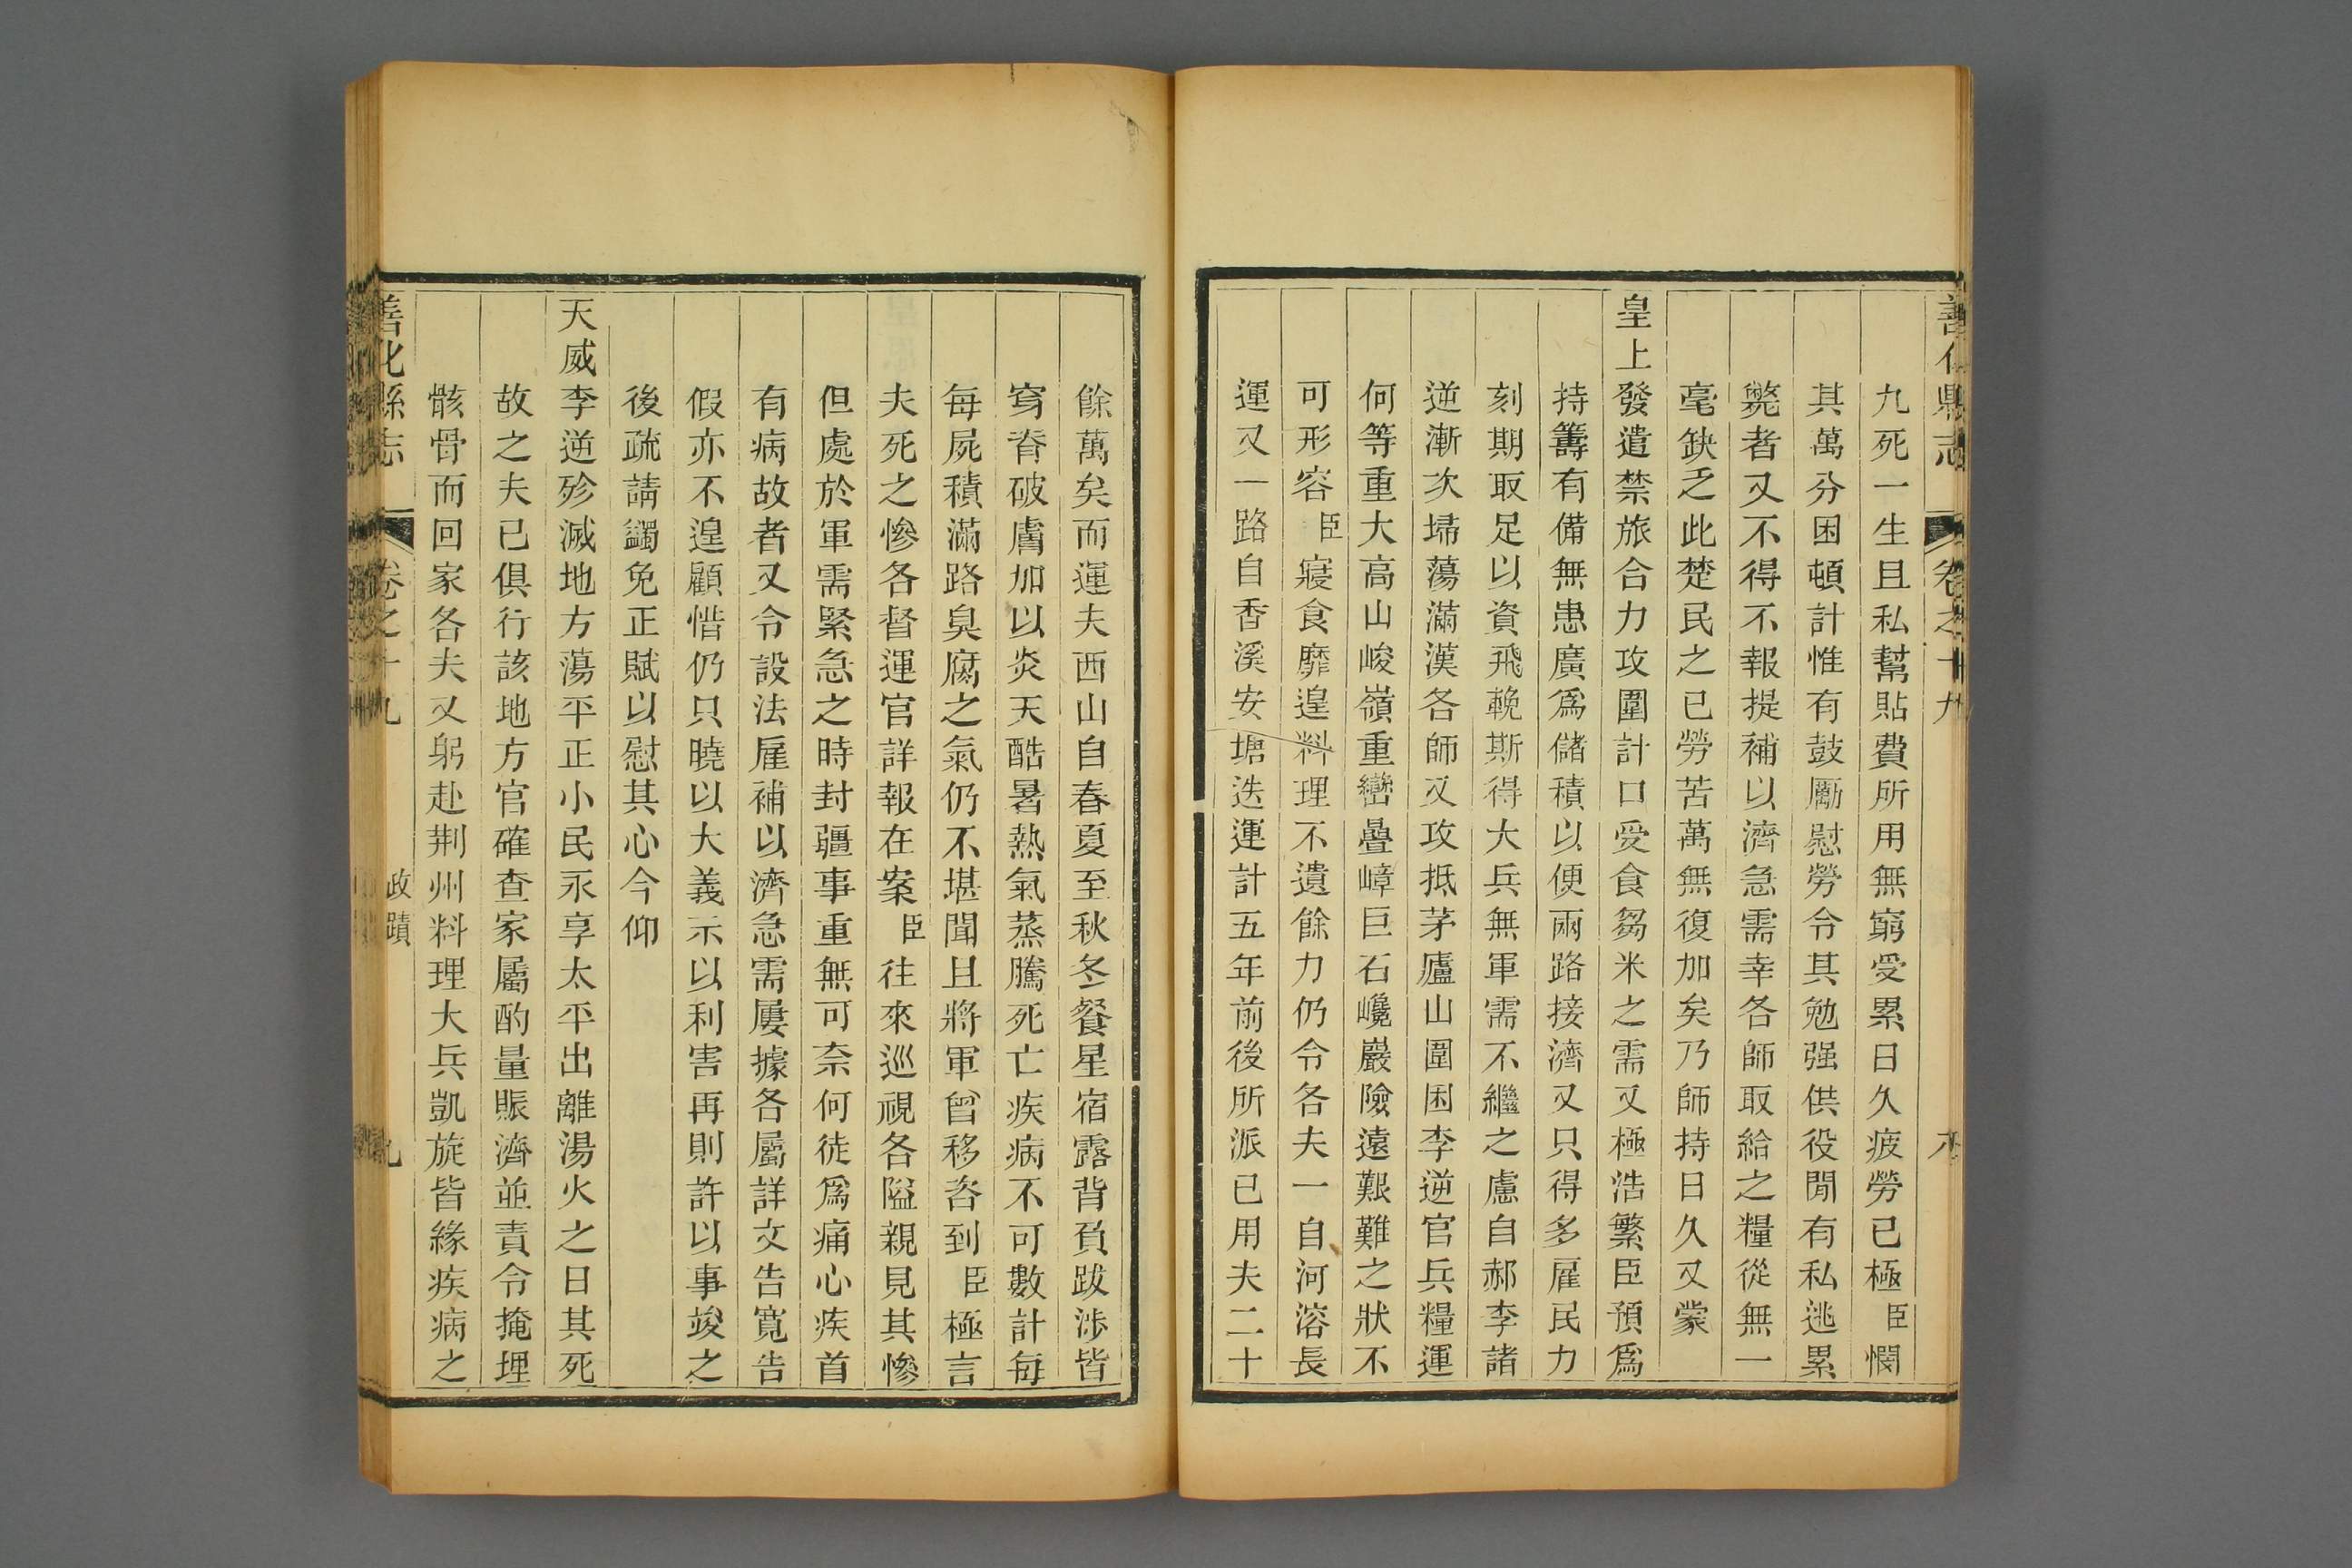 善化縣志 卷之十九
九死一生且私幫貼費所用無窮受累日久疲勞已極臣憫
其萬分困頓計惟有鼓勵慰勞令其勉强供役閒有私逃累
斃者又不得不報提補以濟急需幸各師取給之糧從無一
毫缺乏此楚民之已勞苦萬無復加矣乃師持日久又蒙
皇上發遣禁旅合力攻圍計口受食芻米之需又極浩繁臣預爲
持籌有備無患廣爲儲積以便兩路接濟又只得多雇民力
刻期取足以資飛輓斯得大兵無軍需不繼之慮自郝李諸
逆漸次埽蕩滿漢各師又攻抵茅廬山圍困李逆官兵糧運
何等重大高山峻嶺重巒疊嶂巨石巉巖險遠艱難之狀不
可形容臣寢食靡遑料理不遺餘力仍令各夫一自河溶長
運又一路自香溪安塘迭運計五年前後所派已用夫二十
餘萬矣而運夫西山自春夏至秋冬餐星宿露背負跋涉皆
穿脊破膚加以炎天酷暑熱氣蒸騰死亡疾病不可數計每
每屍積滿路臭腐之氣仍不堪聞且將軍曾移咨到臣極言
夫死之慘各督運官詳報在案臣往來巡視各隘親見其慘
但處於軍需緊急之時封疆事重無可奈何徒爲痛心疾首
有病故者又令設法雇補以濟急需屢據各屬詳文告寬告
假亦不遑顧惜仍只曉以大義示以利害再則許以事竣之
後疏請蠲免正賦以慰其心今仰
天威李逆殄滅地方蕩平正小民永享太平出離湯火之日其死
故之夫已俱行該地方官確查家屬酌量賑濟並責令掩埋
骸骨而回家各夫又躬赴荆州料理大兵凱旋皆緣疾病之
善化縣志 卷之十九 政蹟 九